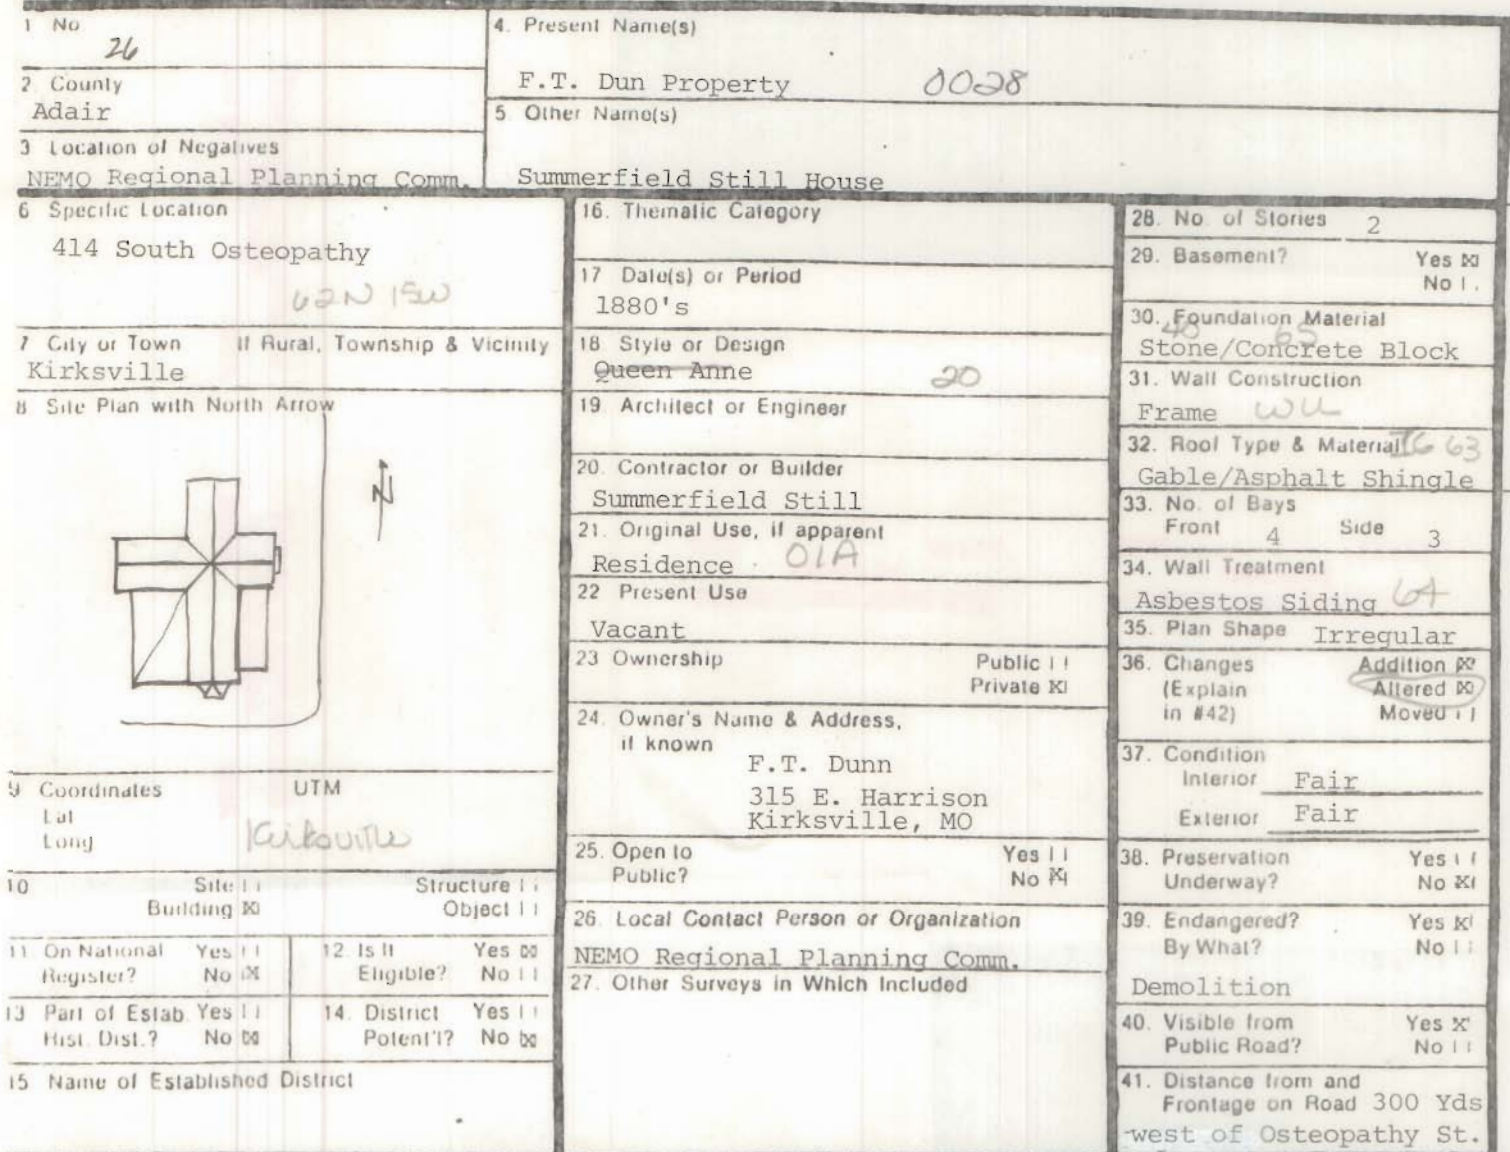 1 No
26
2 County
Adair
3 Location of Negatives
NEMO Regional Planning Comm.
4. Present Name(s)
F.T. Dun Property 0028
5 Other Name(s)
Summerfield Still House
6 Specific Location
414 South Osteopathy
62N 15W
7 City or Town If Rural, Township & Vicinity
Kirksville
8 Site Plan with North Arrow
N
9 Coordinates UTM
Lat
Long
Kirksville
10 Site Structure
Building X Object
11 On National Register? Yes
No X
12 Is It Eligible? Yes X
No
13 Part of Estab. Hist. Dist.? Yes
No X
14. District Potent'l? Yes
No X
15 Name of Established District
16. Thematic Category
17 Date(s) or Period
1880's
18 Style or Design
Queen Anne 20
19. Architect or Engineer
20. Contractor or Builder
Summerfield Still
21. Original Use, if apparent
Residence 01A
22 Present Use
Vacant
23 Ownership Public
Private X
24. Owner's Name & Address,
if known
F.T. Dunn
315 E. Harrison
Kirksville, MO
25. Open to Yes
Public? No X
26. Local Contact Person or Organization
NEMO Regional Planning Comm.
27. Other Surveys in Which Included
28. No. of Stories 2
29. Basement? Yes X
No
30. Foundation Material
40 65
Stone/Concrete Block
31. Wall Construction
Frame
32. Roof Type & Material 63
Gable/Asphalt Shingle
33. No. of Bays
Front 4 Side 3
34. Wall Treatment
Asbestos Siding
35. Plan Shape Irregular
36. Changes Addition X
(Explain Altered X
in #42) Moved
37. Condition
Interior Fair
Exterior Fair
38. Preservation Yes
Underway? No X
39. Endangered? Yes X
By What? No
Demolition
40. Visible from Yes X
Public Road? No
41. Distance from and
Frontage on Road 300 Yds
west of Osteopathy St.